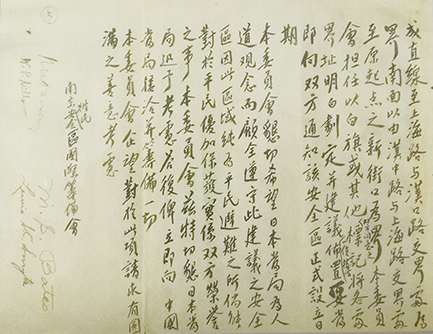 成直线至上海路与漢口路交界處为
界南面以由漢中路与上海路交界處
至原起点之新街口为界本委員
會担任以白旗或其他標記將各處
界址明白劃定并建議佈置
即向双方通知該安全區正式設立
期
本委員會懇切希望日本當局为人
道观念而顾全遵守此建議之安全
區因此區域純为平民避難之所
對於平民優加保護實係双方榮譽
之事本委員會茲特切懇日本當
局迅予考慮 後俾立即向中國
當局接洽并準備一切
本委員會企望對於此項請求有圓
滿之善意考慮
南京難民安全區國際籌備會
M. S. Bates
W. P. Mills
5.